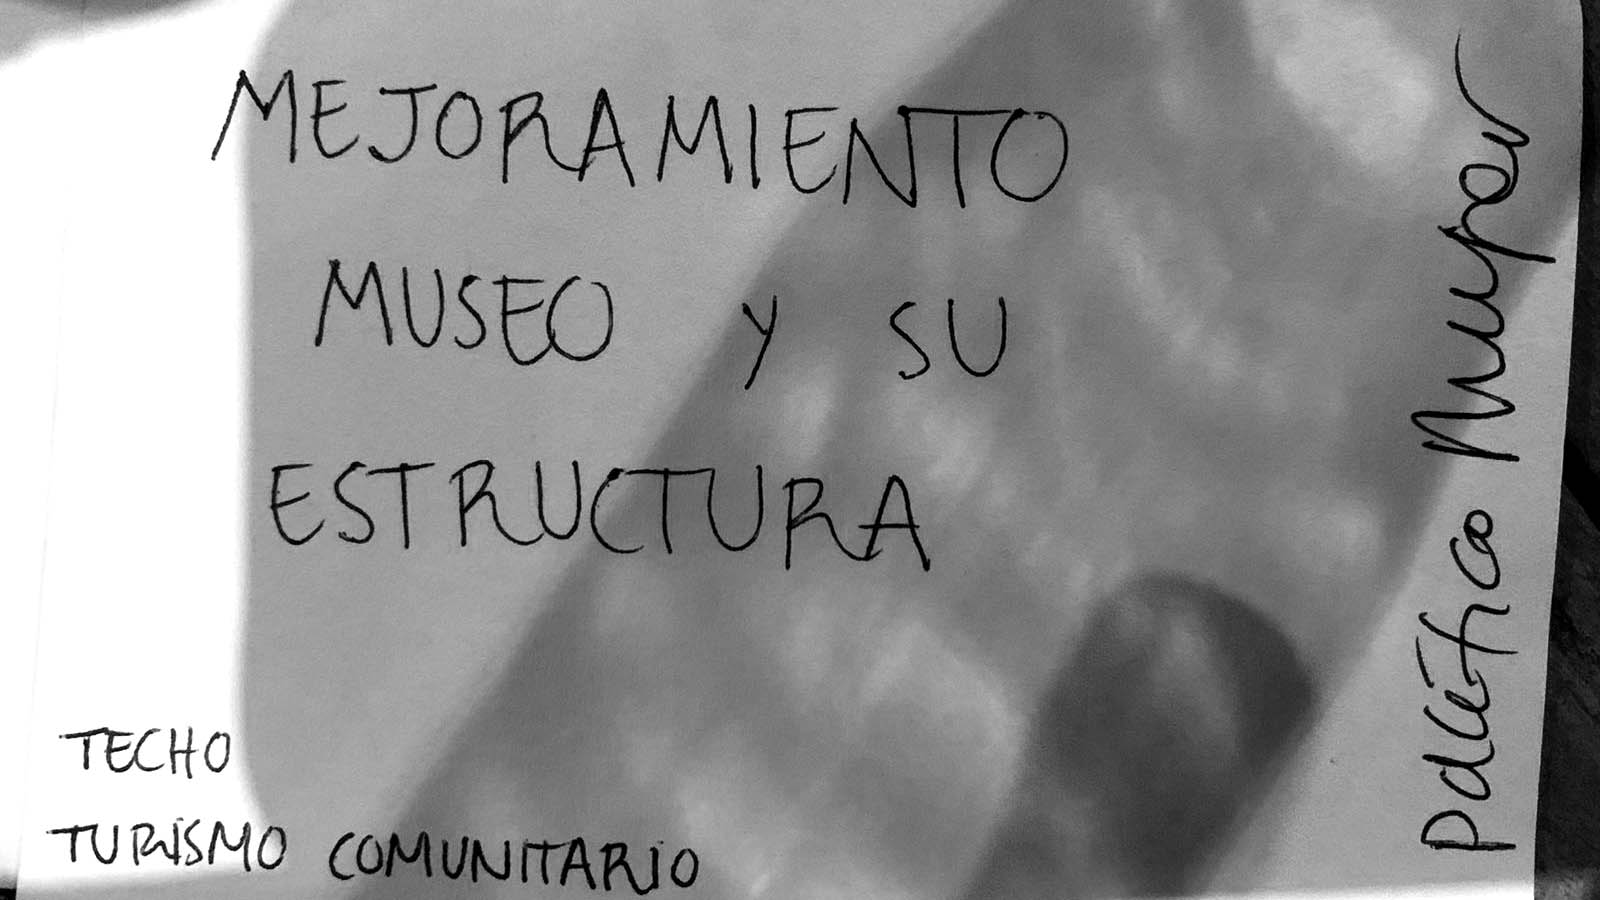 MEJORAMIENTO
MUSEO Y SU
ESTRUCTURA
TECHO
TURISMO COMUNITARIO
política